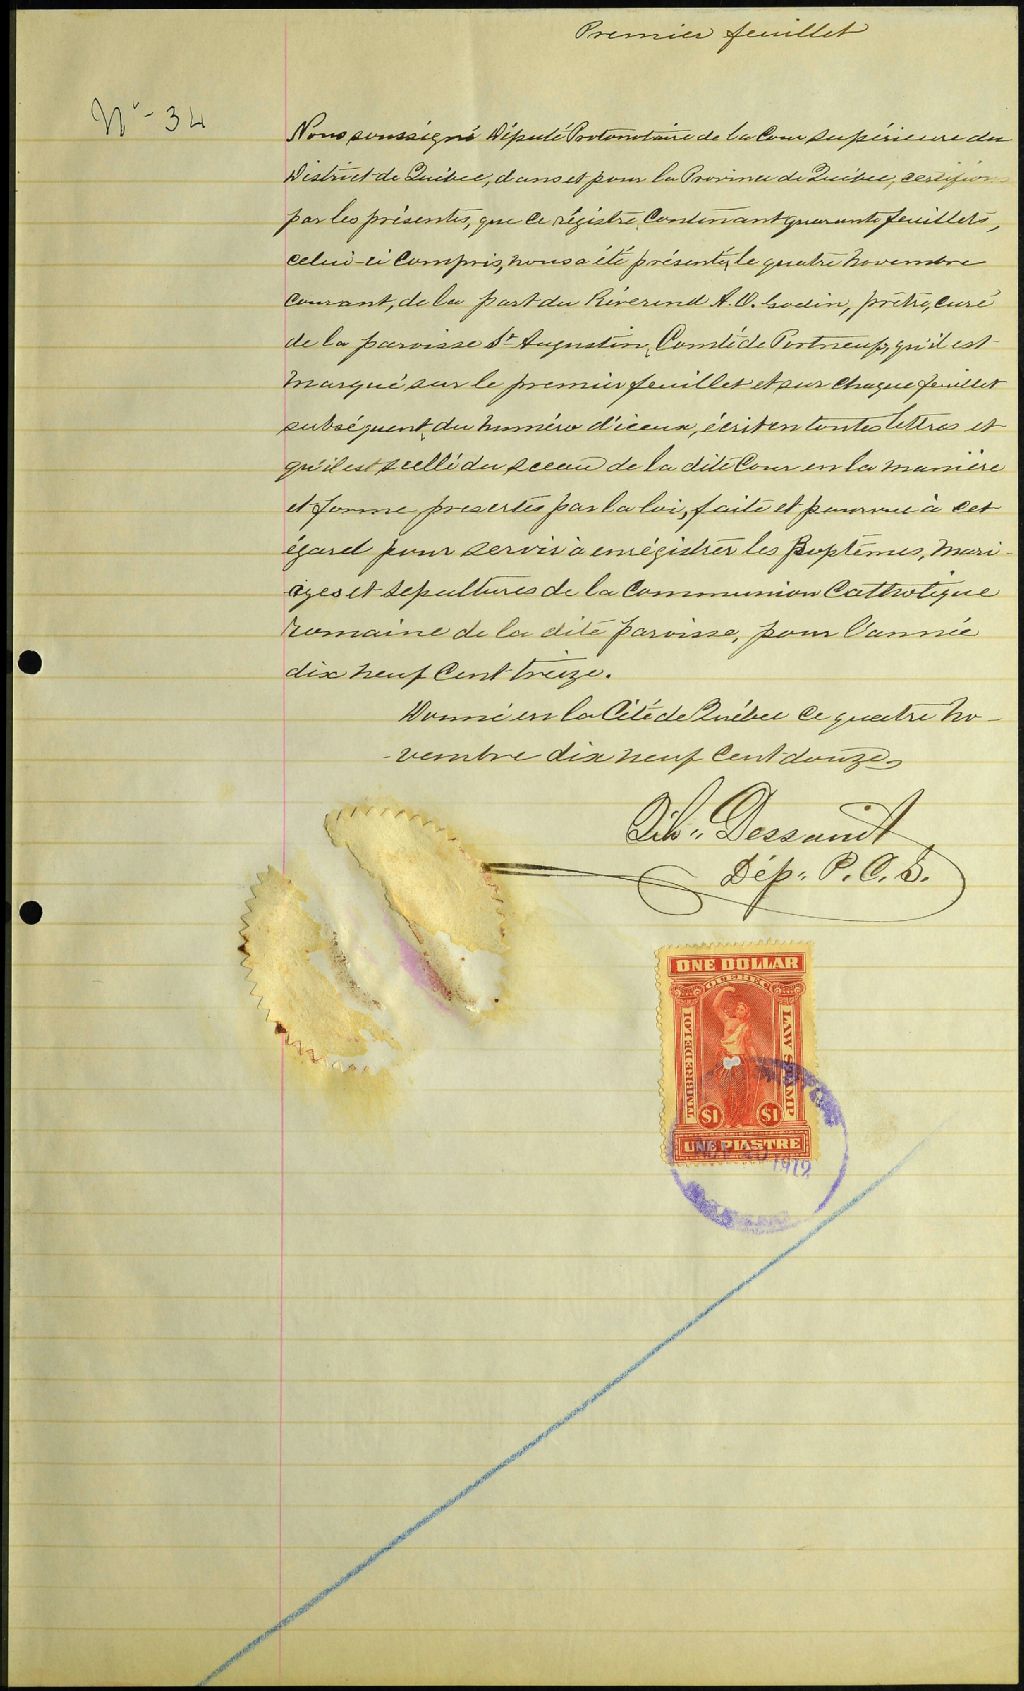 Premier feuillet
N° - 34
Nous soussigné Député Protonotaire de la Cour Supérieure du
District de Québec, dans et pour la Province de Québec, certifions
par les présentes, que ce régistre, contenant quarante feuillets,
celui-ci compris, nous a été présenté, le quatre novembre
courant, de la part du Révérend A. O. Godin, prêtre, curé
de la paroisse St Augustin, Comté de Portneuf, qu'il est
marqué sur le premier feuillet et sur chaque feuillet
subséquent, du numéro d'iceux, écrit en toutes lettres et
qu'il est scellé du sceau de la dite Cour en la manière
et forme prescrites par la loi, faite et pourvue à cet
égard pour servir à enrégistrer les Baptêmes, Mari-
ages et Sépultures de la Communion Catholique
romaine de la dite paroisse, pour l'année
dix neuf cent treize.
Donné en la Cité de Québec ce quatre no-
-vembre dix neuf cent douze,
Dessault
Dép. P. C. S.
ONE DOLLAR
QUEBEC
TIMBRE DE LOI
LAW STAMP
$1 $1
UNE PIASTRE
1912